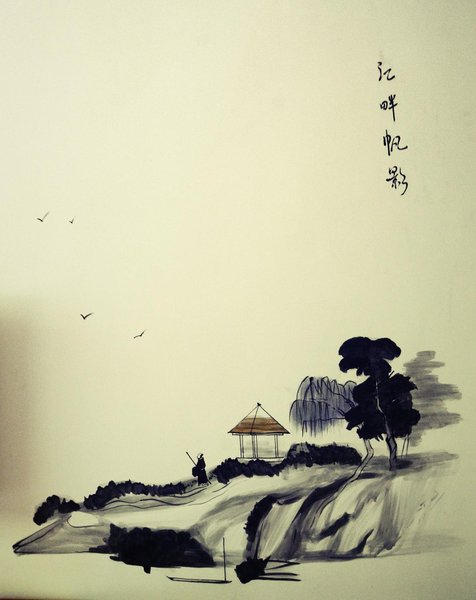 江畔帆影